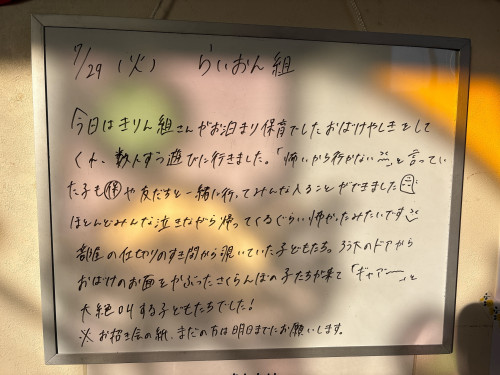 7/29 (火) らいおん組
今日はきりん組さんがお泊まり保育でした。おばけやしきをして
くれ、数人ずつ遊びに行きました。「怖いから行かない」と言ってい
た子も保や友だちと一緒に行ってみんな入ることができました
ほとんどみんな泣きながら帰ってくるぐらい怖かったみたいです
部屋の仕切りのすき間から覗いていた子どもたち。のドアから
おばけのお面をかぶったさくらんぼの子たちが来て「ギャアー」と
大絶叫する子どもたちでした!
※お招き会の紙、まだの方は明日までにお願いします。